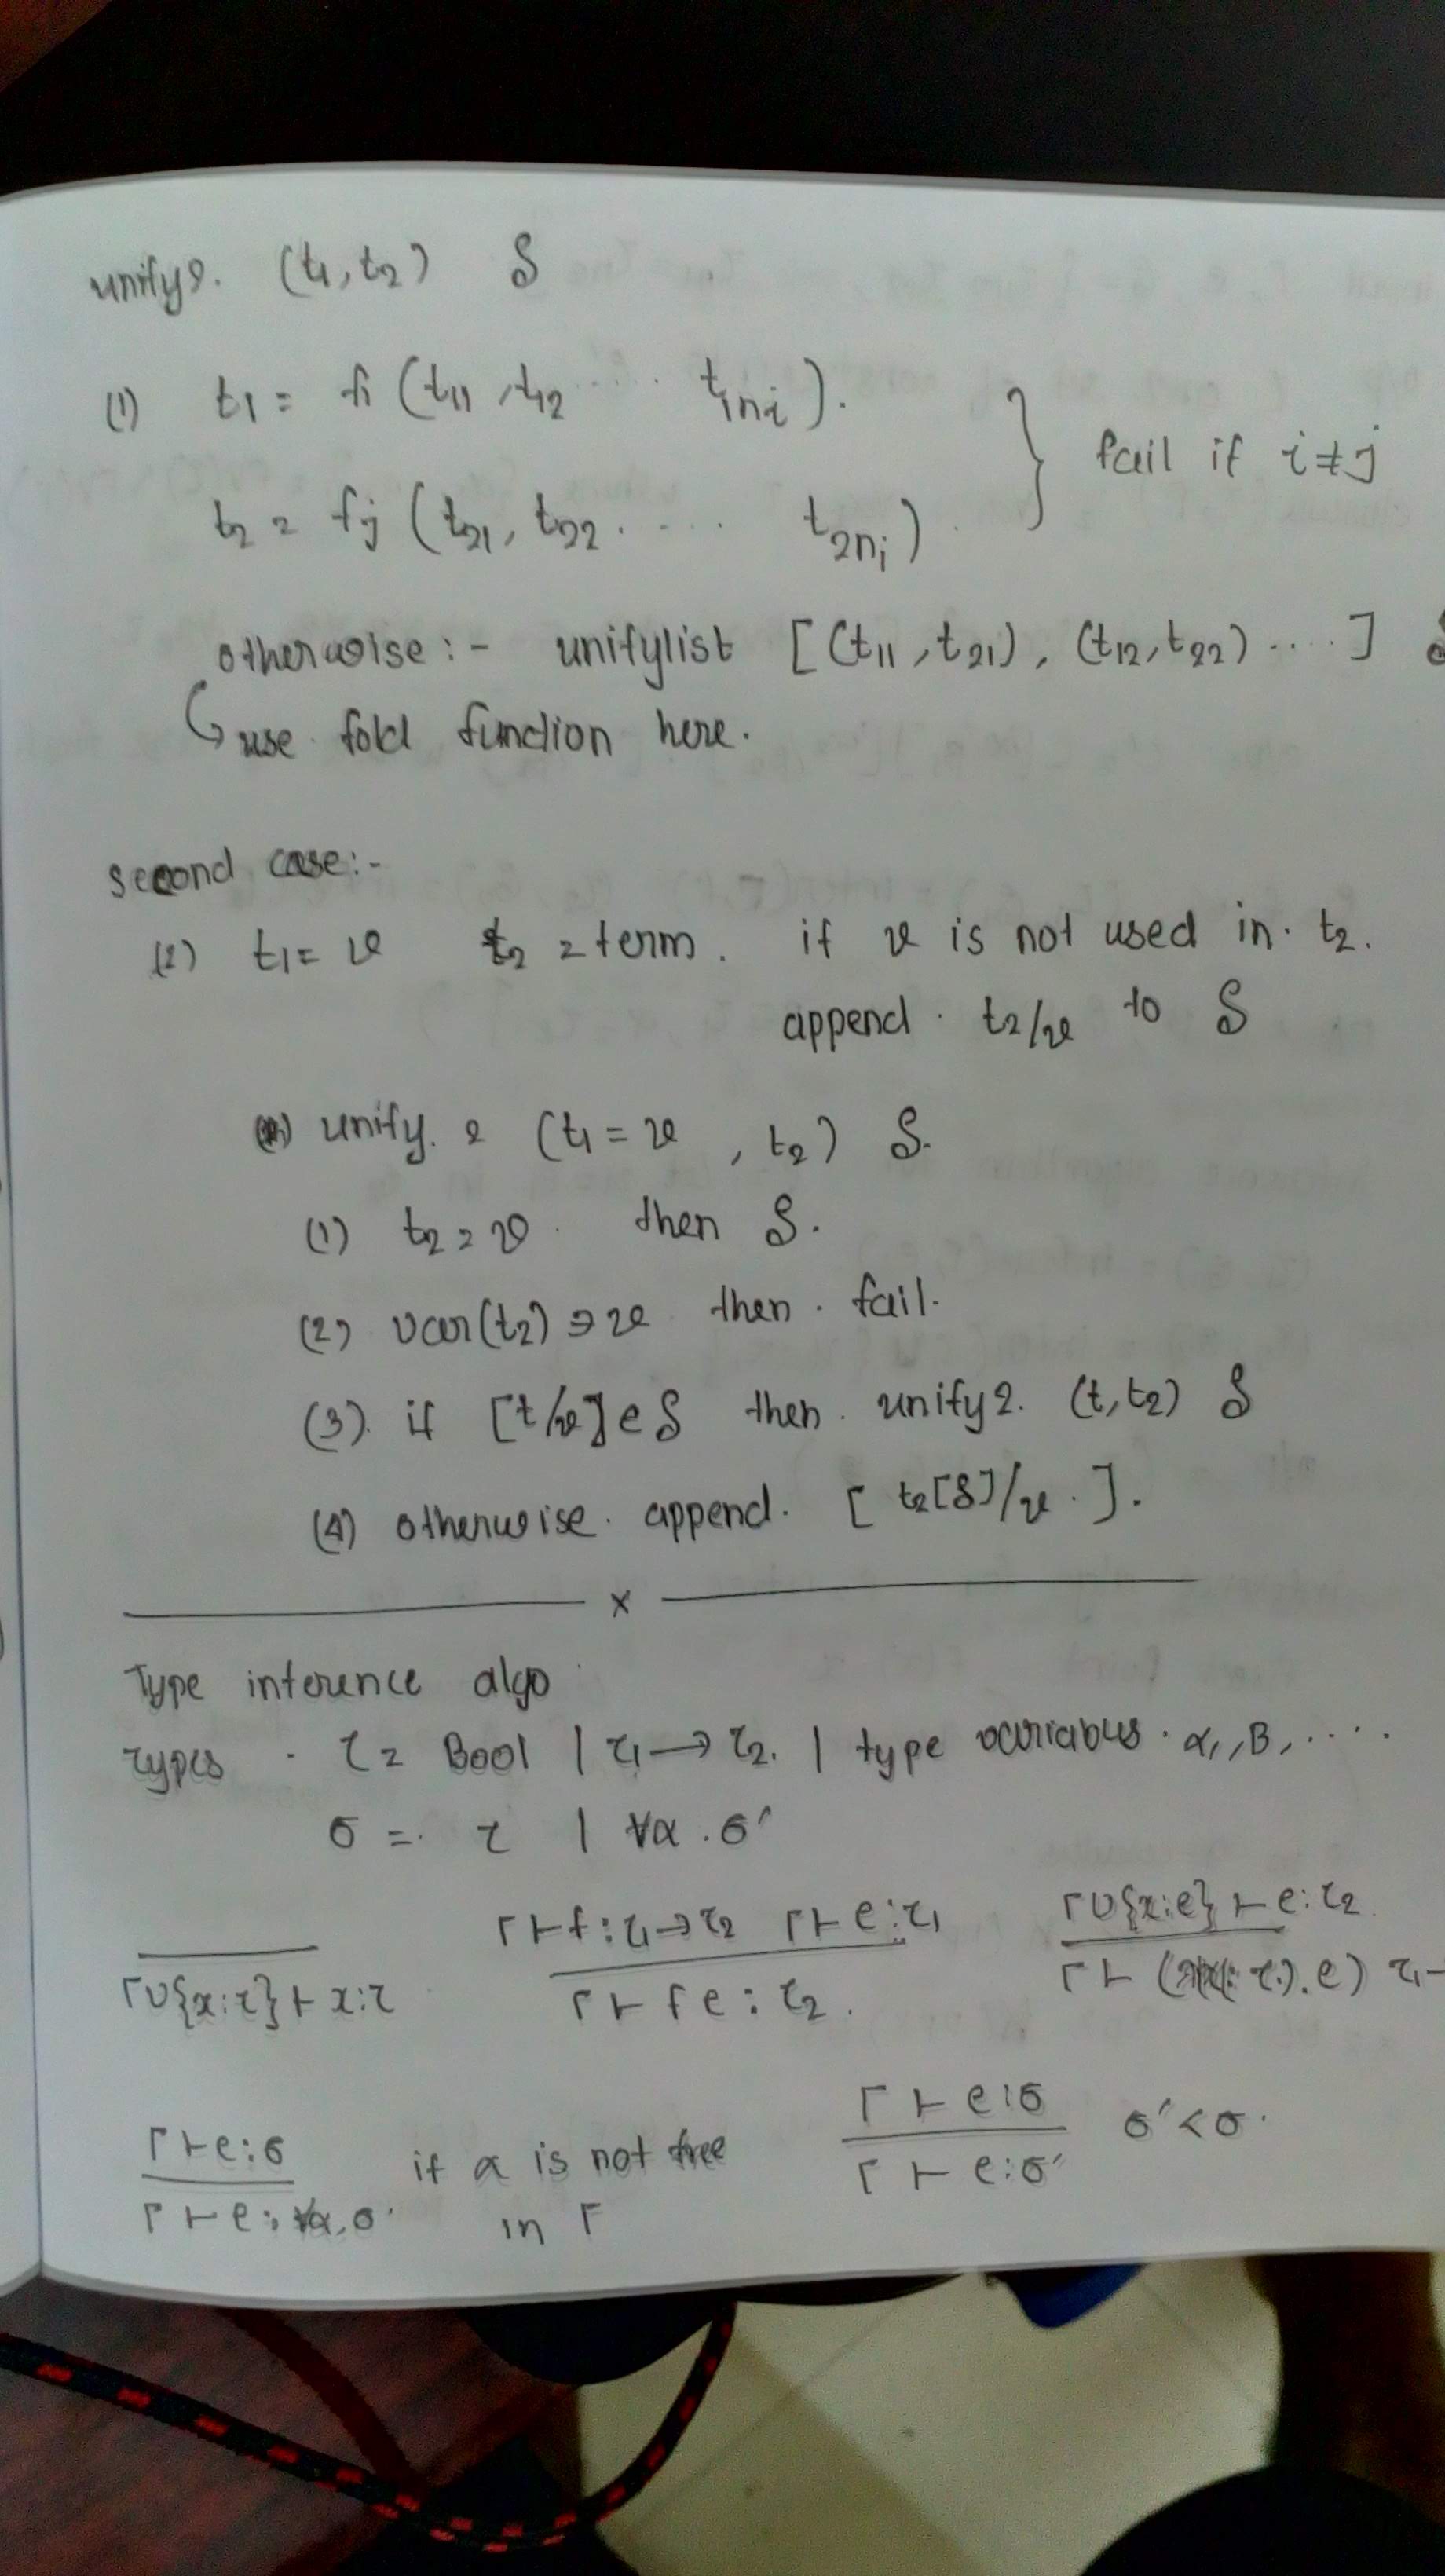 unify2. (t₁, t₂) S
(1) t₁ = fi (t₁₁, t₁₂ ..... t₁nᵢ).
t₂ = fj (t₂₁, t₂₂ ..... t₂nⱼ). } fail if i≠j
otherwise :- unifylist [(t₁₁, t₂₁), (t₁₂, t₂₂) .... ]
↳ use fold function here.
second case :-
(2) t₁ = v t₂ = term. if v is not used in t₂.
append t₂/v to S
unify 2 (t₁ = v, t₂) S.
(1) t₂ = v then S.
(2) var(t₂) ∋ v then fail.
(3) if [t/v] ∈ S then unify2. (t, t₂) S
(4) otherwise append. [ t₂[S]/v ].
x
Type inference algo
types . τ = Bool | τ₁ → τ₂. | type variables. α₁, B, ....
σ = τ | ∀α . σ'
Γ ⊢ f : τ₁ → τ₂ Γ ⊢ e : τ₁ Γ ∪ {x:e} ⊢ e : τ₂
Γ ∪ {x:τ} ⊢ x:τ Γ ⊢ f e : τ₂. Γ ⊢ ( τ).e) τ₁ –
Γ ⊢ e : σ if α is not free Γ ⊢ e : σ σ' < σ.
Γ ⊢ e : ∀α.σ in Γ Γ ⊢ e : σ'